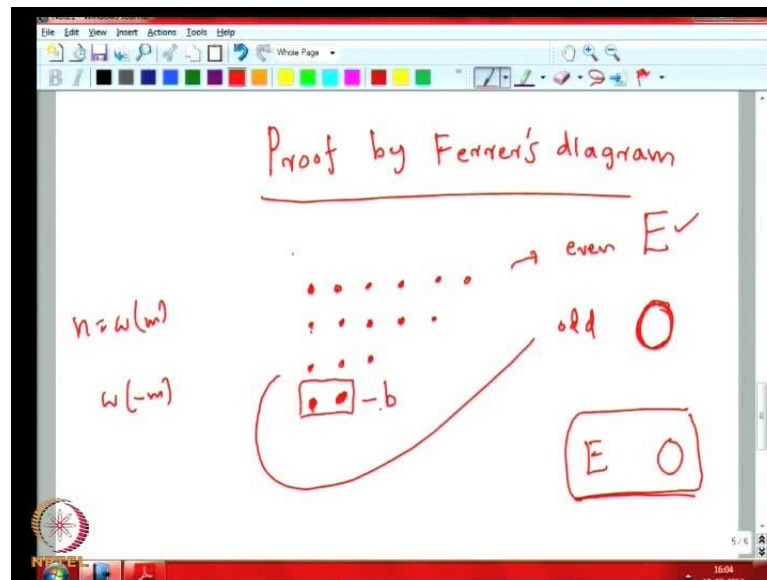 File Edit View Insert Actions Tools Help
Whole Page
B I
Proof by Ferrer's diagram
even E ✓
n = ω(m)
odd O
ω(-m)
- b
E O
NPTEL
5/6
16:04